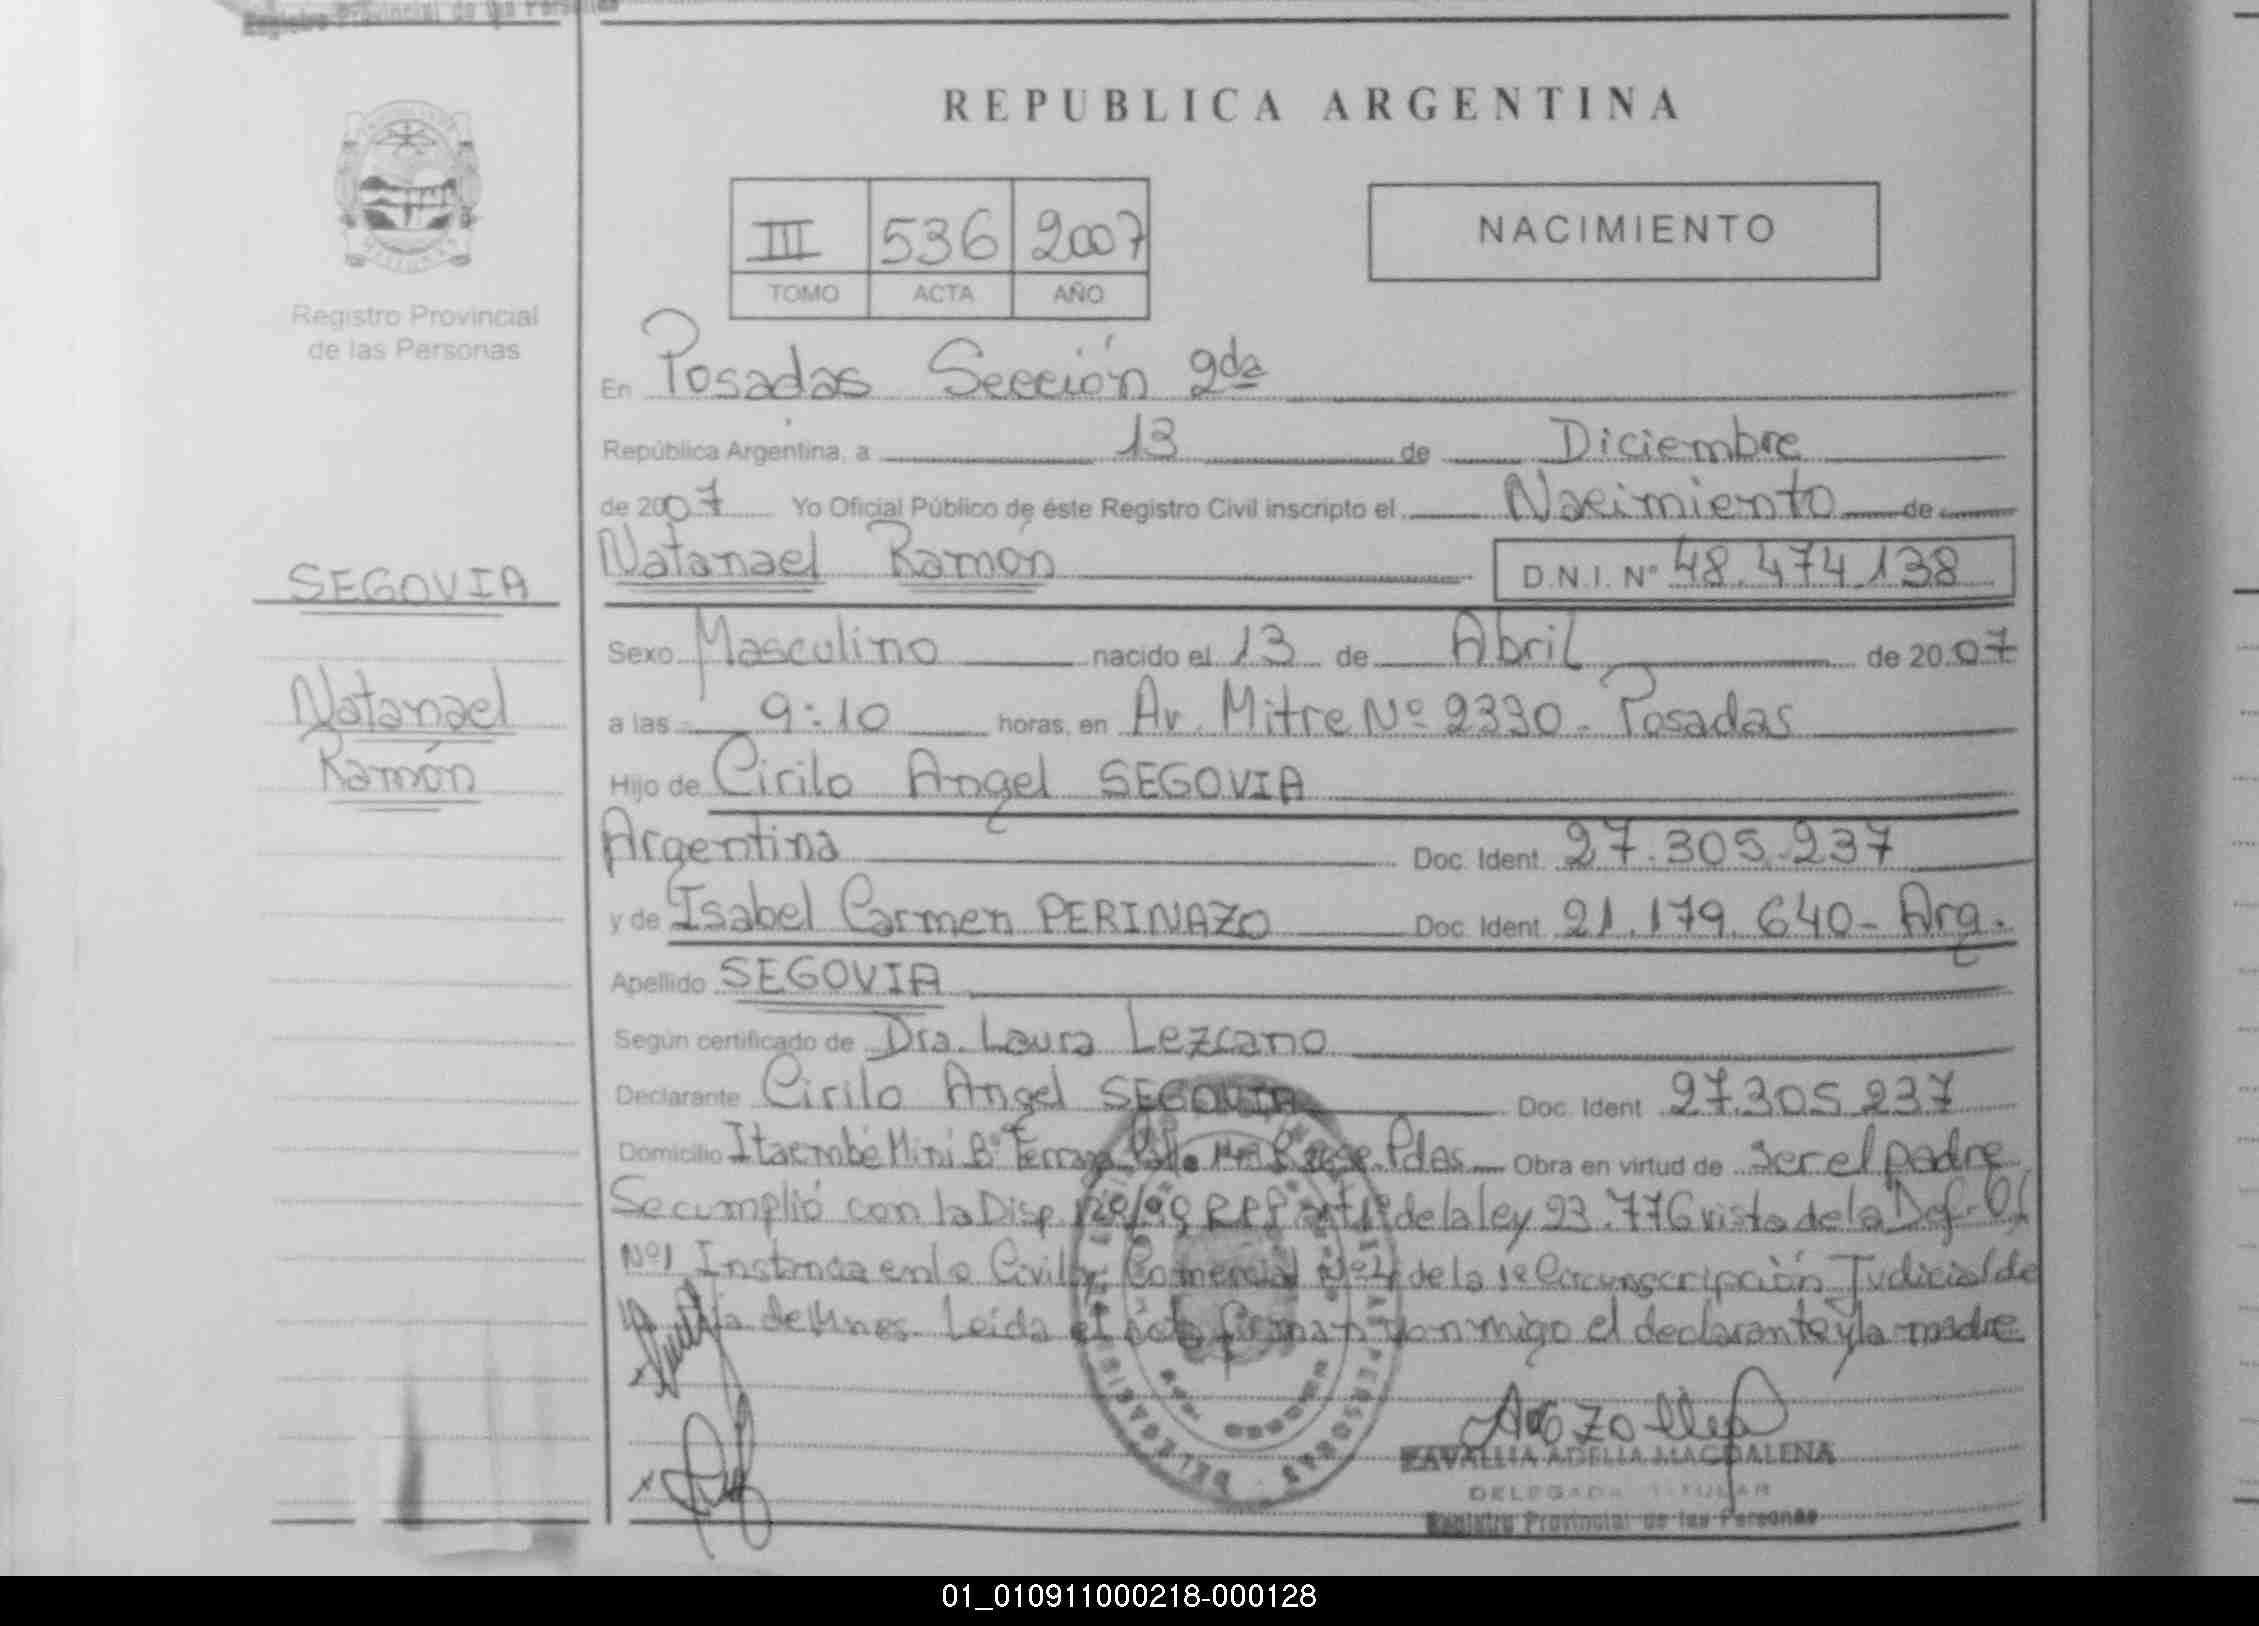 Registro Provincial de las Personas
REPUBLICA ARGENTINA
III 536 2007
TOMO ACTA AÑO
NACIMIENTO
Registro Provincial
de las Personas
En Posadas Sección 2da
República Argentina, a 13 de Diciembre
de 2007 Yo Oficial Público de éste Registro Civil inscripto el Nacimiento de
Natanael Ramón D.N.I. Nº 48.474.138
SEGOVIA
Natanael
Ramón
Sexo Masculino nacido el 13 de Abril de 2007
a las 9:10 horas, en Av. Mitre Nº 2330 - Posadas
Hijo de Cirilo Angel SEGOVIA
Argentina Doc. Ident. 27.305.237
y de Isabel Carmen PERINAZO Doc. Ident. 21.179.640 - Arg.
Apellido SEGOVIA
Según certificado de Dra. Laura Lezcano
Declarante Cirilo Angel SEGOVIA Doc. Ident. 27.305.237
Domicilio Itaembé Mini Bº Pdas Obra en virtud de ser el padre
Se cumplió con la Disp. de la ley 23.776 vista de la Def. Of
Nº1 Instancia en lo Civil y Comercial de la 1º Circunscripción Judicial de
de Mnes. Leída el acta firman conmigo el declarante y la madre
ADELIA MAGDALENA
DELEGADA TITULAR
Registro Provincial de las Personas
01_010911000218-000128